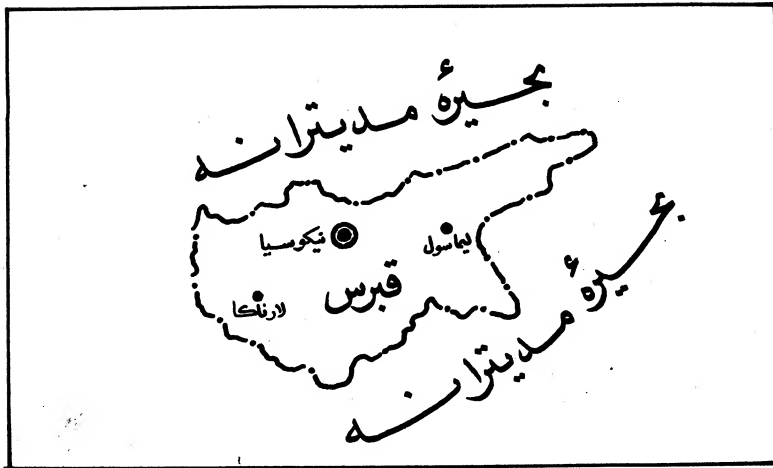 بحیرهٔ مدیترانه
نیکوسیا
لیماسول
قبرس
لارناکا
بحیرهٔ مدیترانه